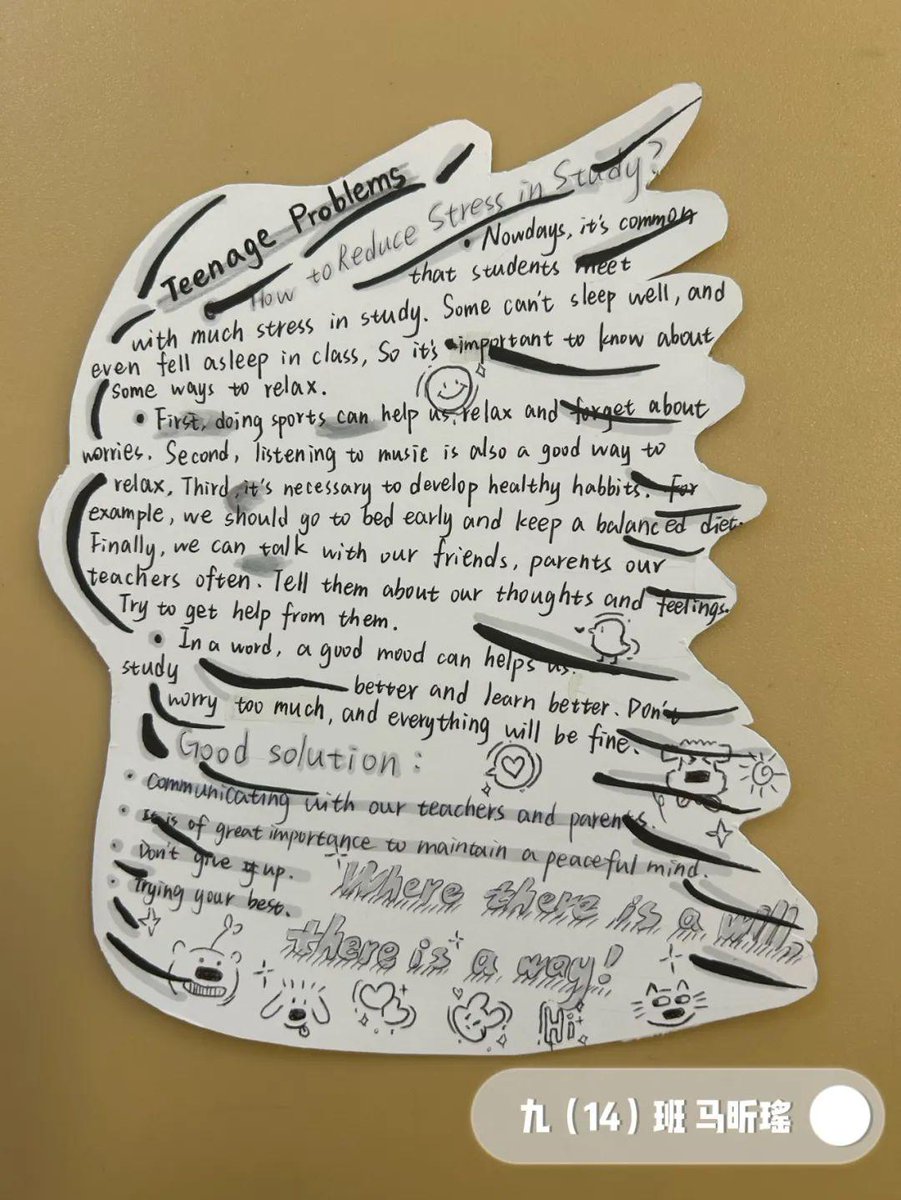 Teenage Problems
How to Reduce Stress in Study?
• Nowdays, it's common
that students meet
with much stress in study. Some can't sleep well, and
even fell asleep in class, So it's important to know about
some ways to relax.
• First, doing sports can help us relax and forget about
worries. Second, listening to music is also a good way to
relax, Third, it's necessary to develop healthy habbits. For
example, we should go to bed early and keep a balanced diet.
Finally, we can talk with our friends, parents our
teachers often. Tell them about our thoughts and feelings.
Try to get help from them.
• In a word, a good mood can helps us
study better and learn better. Don't
worry too much, and everything will be fine.
Good solution:
• Communicating with our teachers and parents.
• It is of great importance to maintain a peaceful mind.
• Don't give it up.
• Trying your best.
Where there is a will,
there is a way!
Hi
九（14）班 马昕瑤